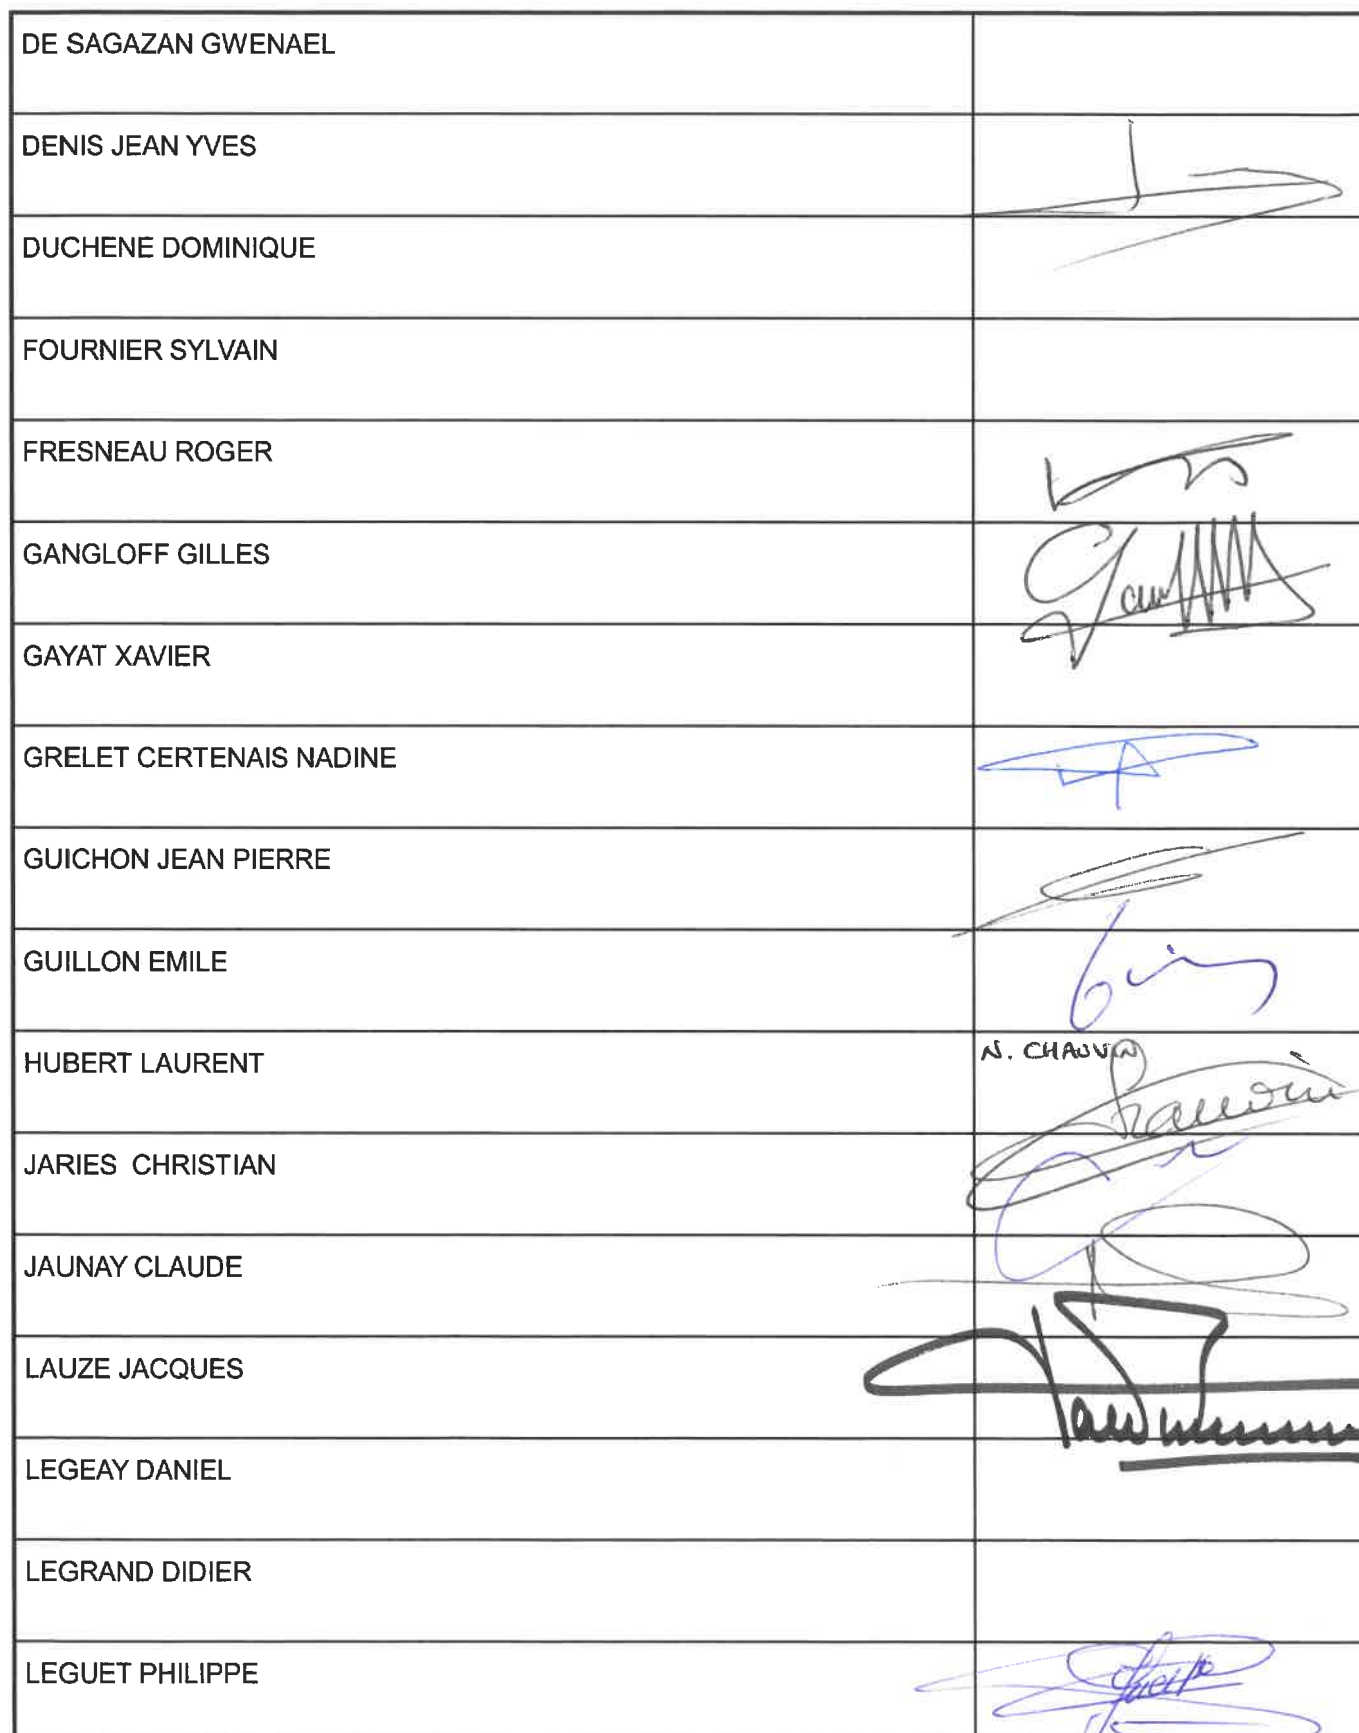 DE SAGAZAN GWENAEL
DENIS JEAN YVES
DUCHENE DOMINIQUE
FOURNIER SYLVAIN
FRESNEAU ROGER
GANGLOFF GILLES
GAYAT XAVIER
GRELET CERTENAIS NADINE
GUICHON JEAN PIERRE
GUILLON EMILE
HUBERT LAURENT
N. CHAUVIN
JARIES CHRISTIAN
JAUNAY CLAUDE
LAUZE JACQUES
LEGEAY DANIEL
LEGRAND DIDIER
LEGUET PHILIPPE